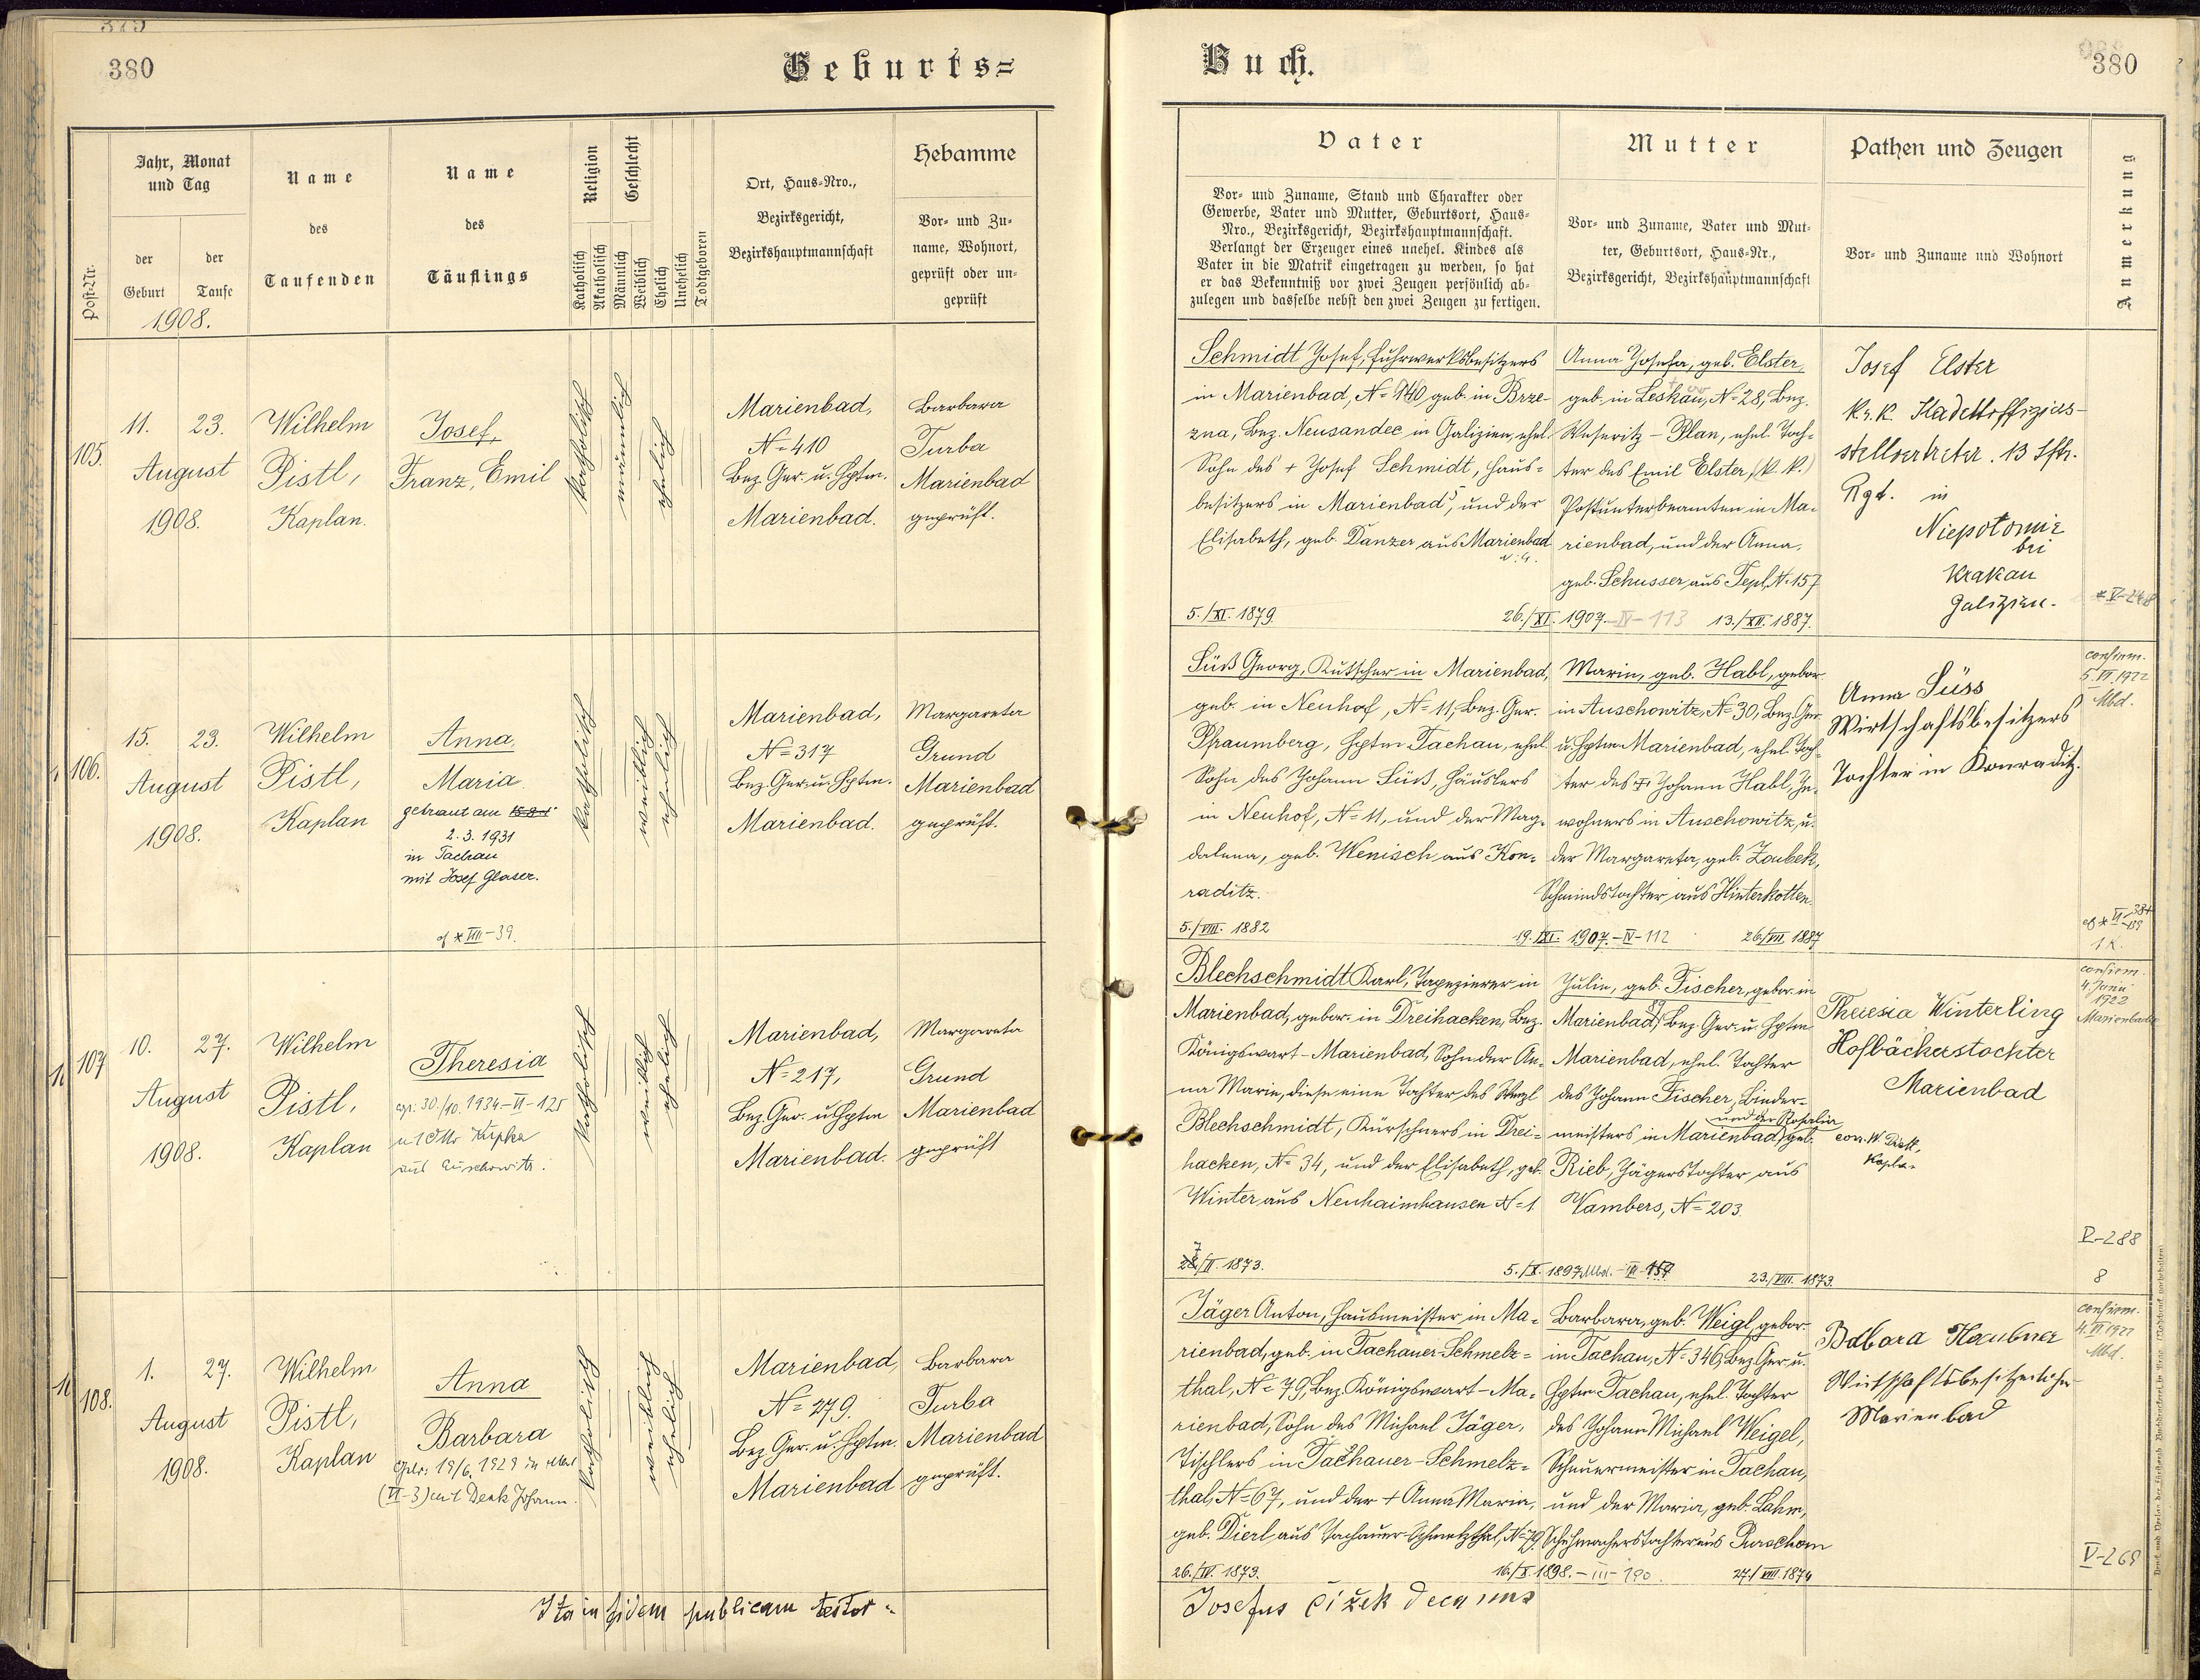 380
Geburts=
Jahr, Monat
und Tag
der
Geburt
der
Taufe
1908.
Post-Nr.
Name
des
Taufenden
Name
des
Täuflings
Religion
Katholisch
Akatholisch
Geschlecht
Männlich
Weiblich
Ehelich
Unehelich
Todtgeboren
Ort, Haus=Nro.,
Bezirksgericht,
Bezirkshauptmannschaft
Hebamme
Vor= und Zu=
name, Wohnort,
geprüft oder un=
geprüft
105.
11. 23.
August
1908.
Wilhelm
Pistl,
Kaplan.
Josef,
Franz, Emil
katholisch
männlich
ehelich
Marienbad,
N=410
Bez. Ger. u. Hptm.
Marienbad.
Barbara
Turba
Marienbad
geprüft.
106.
15. 23.
August
1908.
Wilhelm
Pistl,
Kaplan
Anna,
Maria
getraut am
2. 3. 1931
in Tachau
mit Josef Glaser.
cf * VIII-39.
katholisch
weiblich
ehelich
Marienbad,
N=317
Bez. Ger. u. Hptm.
Marienbad.
Margareta
Grund
Marienbad
geprüft.
107
10. 27.
August
1908.
Wilhelm
Pistl,
Kaplan
Theresia
30./10. 1934-VI-125
katholisch
weiblich
ehelich
Marienbad,
N=217,
Bez. Ger. u. Hptm
Marienbad.
Margareta
Grund
Marienbad
geprüft
108.
1. 27.
August
1908.
Wilhelm
Pistl,
Kaplan
Anna
Barbara
19/6. 1929 in
(VI-3) mit Denk Johann.
katholisch
weiblich
ehelich
Marienbad,
N=279.
Bez. Ger. u. Hptm.
Marienbad
Barbara
Turba
Marienbad
geprüft.
Ita in fidem publicam testor
380
Buch.
Vater
Vor= und Zuname, Stand und Charakter oder
Gewerbe, Vater und Mutter, Geburtsort, Haus=
Nro., Bezirksgericht, Bezirkshauptmannschaft.
Verlangt der Erzeuger eines unehel. Kindes als
Vater in die Matrik eingetragen zu werden, so hat
er das Bekenntniß vor zwei Zeugen persönlich ab=
zulegen und dasselbe nebst den zwei Zeugen zu fertigen.
Mutter
Vor= und Zuname, Vater und Mut=
ter, Geburtsort, Haus=Nr.,
Bezirksgericht, Bezirkshauptmannschaft
Pathen und Zeugen
Vor= und Zuname und Wohnort
Anmerkung
Schmidt Josef, Fuhrwerksbesitzers
in Marienbad, N=140, geb. in Brze=
zna, Bez. Neusandec in Galizien, ehel.
Sohn des + Josef Schmidt, Haus=
besitzers in Marienbad, und der
Elisabeth, geb. Danzer aus Marienbad
5./XI. 1879.
26./XI. 1907.-IV-113
Anna Josefa, geb. Elster,
geb. in Leskau, N=28, Bez.
Weseritz - Plan, ehel. Toch=
ter des Emil Elster, (k. k.)
Postunterbeamten in Ma=
rienbad, und der Anna,
geb. Schusser aus Tepl, N.157
13./XII. 1887.
Josef Elster
k. k. Kadettoffiziers-
stellvertreter. 13 Iftr.
Rgt. in
Niepołomic
bei
Krakau
Galizien.
Süß Georg, Kutscher in Marienbad,
geb. in Neuhof, N=11, Bez. Ger.
Pfraumberg, Hptm Tachau, ehel.
Sohn des Johann Süß, Häuslers
in Neuhof, N=11, und der Mag=
dalena, geb. Wenisch aus Kon=
raditz.
5./VIII. 1882
19./XI. 1907.-IV-112
Marin, geb. Habl, gebor.
in Auschowitz, N=30, Bez. Ger.
u. Hptm Marienbad, ehel. Toch=
ter des + Johann Habl, In=
wohners in Auschowitz, u.
der Margareta, geb. Zoubek,
Schmiedstochter aus Hinterkotten.
26./VII. 1887
Anna Süss
Wirtschaftsbesitzers
Tochter in Konraditz.
confirm.
5. VI. 1922
Mbd.
1 K.
Blechschmidt Karl, Tapezierer in
Marienbad, gebor. in Dreihacken, Bez.
Königswart-Marienbad, Sohn der An=
na Marie, diese eine Tochter des Wenzl
Blechschmidt, Kürschners in Drei=
hacken, N=34, und der Elisabeth, geb.
Winter aus Neuhaimhausen N=1
/II. 1873.
5./X. 1897 Mbd.-III-157
Julie, geb. Fischer, gebor. in
Marienbad, Bez. Ger. u. Hptm
Marienbad, ehel. Tochter
des Johann Fischer, Binder=
meisters in Marienbad, und der Rosalia geb.
Rieb, Jägerstochter aus
Wambers, N=203.
23./VIII. 1873.
Theresia Winterling
Hofbäckerstochter
Marienbad
corr. W. Pistl,
Kaplan
confirm.
4. Juni
1922
Marienbad
V-288
8
Jäger Anton, Hausmeister in Ma=
rienbad, geb. in Tachauer-Schmelz=
thal, N=79, Bez. Königswart-Ma=
rienbad, Sohn des Michael Jäger,
Tischlers in Tachauer-Schmelz=
thal, N=67, und der + Anna Maria,
geb. Dierl aus Tachauer-Schmelzthal, N=79.
26./IV. 1873.
16./X. 1898.-III-190.
Barbara, geb. Weigl, gebor.
in Tachau, N=346, Bez. Ger. u.
Hptm Tachau, ehel. Tochter
des Johann Michael Weigel,
Scheuermeister in Tachau,
und der Maria, geb. Lahm,
Schuhmacherstochter aus Purschau
27./VIII. 1874
Babara Haubner
Wirtschaftsbesitzerin
Marienbad
confirm.
4. VI 1922
Mbd.
V-269
Josefus Čižek decanus